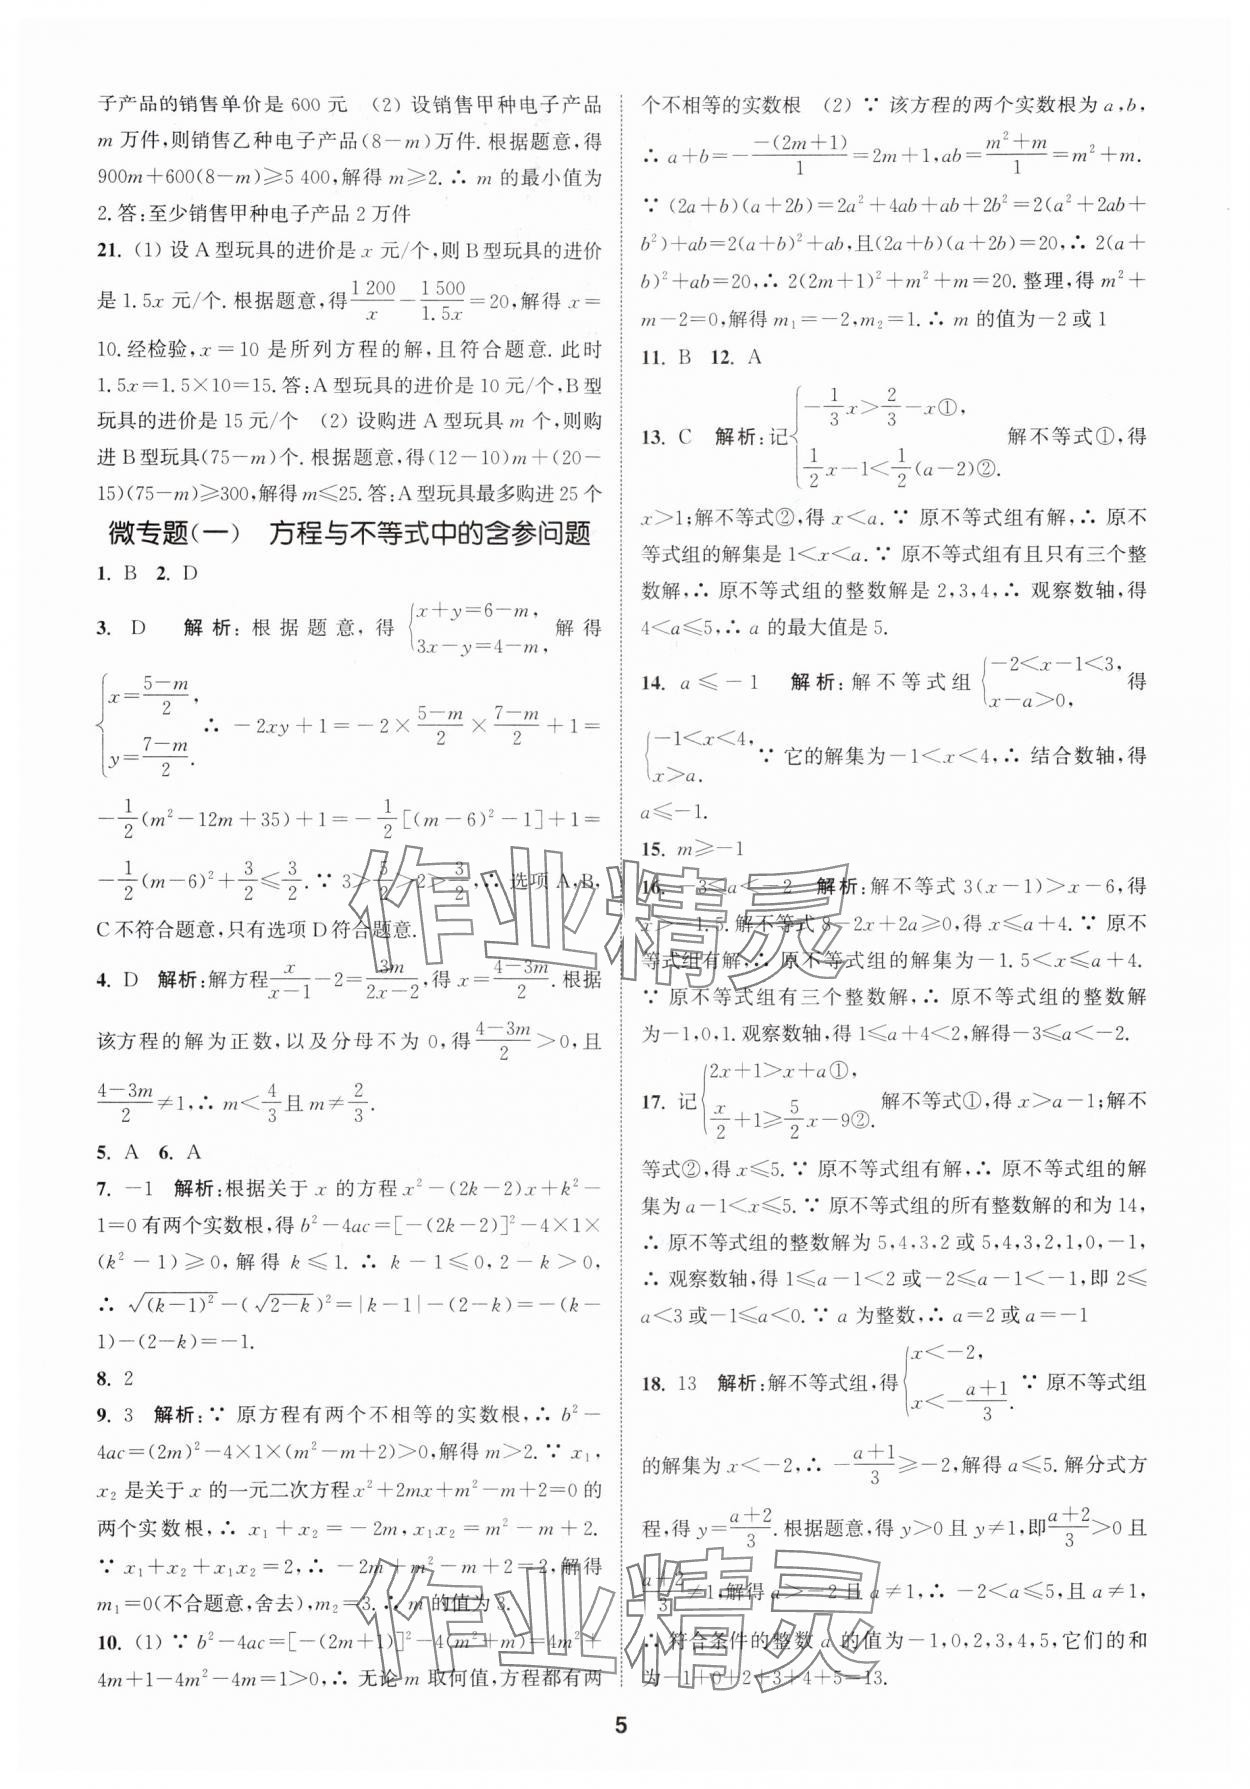 子产品的销售单价是 600 元　(2) 设销售甲种电子产品
m 万件,则销售乙种电子产品(8－m)万件. 根据题意,得
900m＋600(8－m)≥5 400,解得 m≥2. ∴ m 的最小值为
2. 答:至少销售甲种电子产品 2 万件
21. (1) 设 A 型玩具的进价是 x 元/个,则 B 型玩具的进价
是 1.5x 元/个. 根据题意,得1 200/x－1 500/1.5x＝20,解得 x＝
10. 经检验,x＝10 是所列方程的解,且符合题意. 此时
1.5x＝1.5×10＝15. 答:A 型玩具的进价是 10 元/个,B 型
玩具的进价是 15 元/个　(2) 设购进 A 型玩具 m 个,则购
进 B 型玩具(75－m)个. 根据题意,得(12－10)m＋(20－
15)(75－m)≥300,解得 m≤25. 答:A 型玩具最多购进 25 个
微专题(一)　方程与不等式中的含参问题
1. B　2. D
3. D　解析:根据题意,得{x＋y＝6－m, 3x－y＝4－m, 解得
{x＝(5－m)/2, y＝(7－m)/2. ∴ －2xy＋1＝－2×(5－m)/2×(7－m)/2＋1＝
－1/2(m²－12m＋35)＋1＝－1/2[(m－6)²－1]＋1＝
－1/2(m－6)²＋3/2≤3/2. ∵ 3＞5/2＞2＞3/2,∴ 选项 A,B,
C 不符合题意,只有选项 D 符合题意.
4. D　解析:解方程x/(x－1)－2＝3m/(2x－2),得 x＝(4－3m)/2. 根据
该方程的解为正数,以及分母不为 0,得(4－3m)/2＞0,且
(4－3m)/2≠1,∴ m＜4/3且 m≠2/3.
5. A　6. A
7. －1　解析:根据关于 x 的方程 x²－(2k－2)x＋k²－
1＝0 有两个实数根,得 b²－4ac＝[－(2k－2)]²－4×1×
(k²－1)≥0,解得 k≤1. ∴ k－1≤0,2－k＞0,
∴ √(k－1)²－(√2－k)²＝|k－1|－(2－k)＝－(k－
1)－(2－k)＝－1.
8. 2
9. 3　解析:∵ 原方程有两个不相等的实数根,∴ b²－
4ac＝(2m)²－4×1×(m²－m＋2)＞0,解得 m＞2. ∵ x₁,
x₂ 是关于 x 的一元二次方程 x²＋2mx＋m²－m＋2＝0 的
两个实数根,∴ x₁＋x₂＝－2m,x₁x₂＝m²－m＋2.
∵ x₁＋x₂＋x₁x₂＝2,∴ －2m＋m²－m＋2＝2,解得
m₁＝0(不合题意,舍去),m₂＝3. ∴ m 的值为 3.
10. (1) ∵ b²－4ac＝[－(2m＋1)]²－4(m²＋m)＝4m²＋
4m＋1－4m²－4m＝1＞0,∴ 无论 m 取何值,方程都有两
个不相等的实数根　(2) ∵ 该方程的两个实数根为 a,b,
∴ a＋b＝－－(2m＋1)/1＝2m＋1,ab＝(m²＋m)/1＝m²＋m.
∵ (2a＋b)(a＋2b)＝2a²＋4ab＋ab＋2b²＝2(a²＋2ab＋
b²)＋ab＝2(a＋b)²＋ab,且(2a＋b)(a＋2b)＝20,∴ 2(a＋
b)²＋ab＝20,∴ 2(2m＋1)²＋m²＋m＝20. 整理,得 m²＋
m－2＝0,解得 m₁＝－2,m₂＝1. ∴ m 的值为－2 或 1
11. B　12. A
13. C　解析:记{－1/3x＞2/3－x①, 1/2x－1＜1/2(a－2)②. 解不等式①,得
x＞1;解不等式②,得 x＜a. ∵ 原不等式组有解,∴ 原不
等式组的解集是 1＜x＜a. ∵ 原不等式组有且只有三个整
数解,∴ 原不等式组的整数解是 2,3,4,∴ 观察数轴,得
4＜a≤5,∴ a 的最大值是 5.
14. a≤－1　解析:解不等式组{－2＜x－1＜3, x－a＞0, 得
{－1＜x＜4, x＞a. ∵ 它的解集为－1＜x＜4,∴ 结合数轴,得
a≤－1.
15. m≥－1
16. －3≤a＜－2　解析:解不等式 3(x－1)＞x－6,得
x＞－1.5. 解不等式 8－2x＋2a≥0,得 x≤a＋4. ∵ 原不
等式组有解,∴ 原不等式组的解集为－1.5＜x≤a＋4.
∵ 原不等式组有三个整数解,∴ 原不等式组的整数解
为－1,0,1. 观察数轴,得 1≤a＋4＜2,解得－3≤a＜－2.
17. 记{2x＋1＞x＋a①, x/2＋1≥5/2x－9②. 解不等式①,得 x＞a－1;解不
等式②,得 x≤5. ∵ 原不等式组有解,∴ 原不等式组的解
集为 a－1＜x≤5. ∵ 原不等式组的所有整数解的和为 14,
∴ 原不等式组的整数解为 5,4,3,2 或 5,4,3,2,1,0,－1,
∴ 观察数轴,得 1≤a－1＜2 或－2≤a－1＜－1,即 2≤
a＜3 或－1≤a＜0. ∵ a 为整数,∴ a＝2 或 a＝－1
18. 13　解析:解不等式组,得{x＜－2, x＜－(a＋1)/3. ∵ 原不等式组
的解集为 x＜－2,∴ －(a＋1)/3≥－2,解得 a≤5. 解分式方
程,得 y＝(a＋2)/3. 根据题意,得 y＞0 且 y≠1,即(a＋2)/3＞0 且
(a＋2)/3≠1,解得 a＞－2 且 a≠1,∴ －2＜a≤5,且 a≠1,
∴ 符合条件的整数 a 的值为－1,0,2,3,4,5,它们的和
为－1＋0＋2＋3＋4＋5＝13.
5
作业精灵
作业精灵